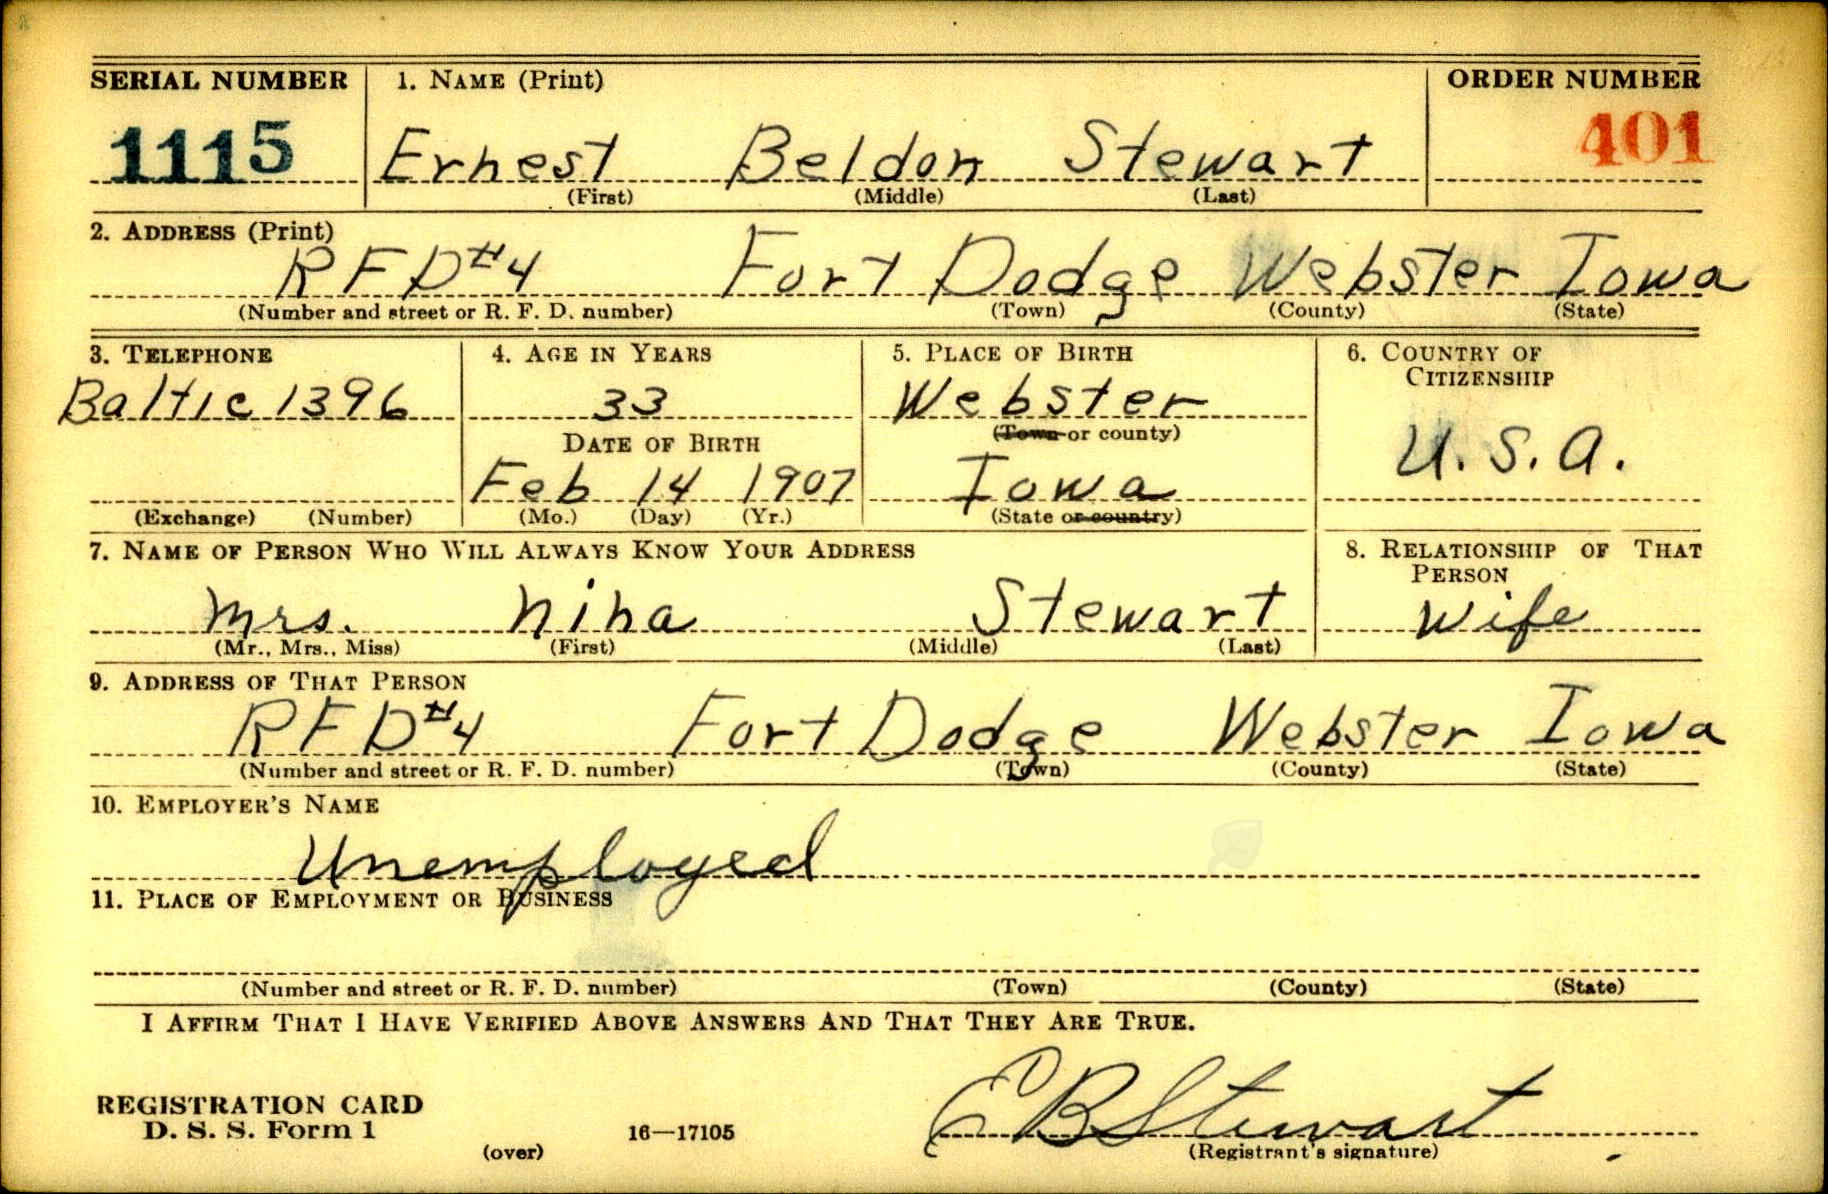 SERIAL NUMBER 1. NAME (Print) ORDER NUMBER
1115 Ernest Beldon Stewart 401
(First) (Middle) (Last)
2. ADDRESS (Print)
RFD #4 Fort Dodge Webster Iowa
(Number and street or R. F. D. number) (Town) (County) (State)
3. TELEPHONE 4. AGE IN YEARS 5. PLACE OF BIRTH 6. COUNTRY OF
CITIZENSHIP
Baltic 1396 33 Webster
DATE OF BIRTH (Town or county) U.S.A.
Feb 14 1907 Iowa
(Exchange) (Number) (Mo.) (Day) (Yr.) (State or country)
7. NAME OF PERSON WHO WILL ALWAYS KNOW YOUR ADDRESS 8. RELATIONSHIP OF THAT
PERSON
Mrs. Nina Stewart Wife
(Mr., Mrs., Miss) (First) (Middle) (Last)
9. ADDRESS OF THAT PERSON
RFD #4 Fort Dodge Webster Iowa
(Number and street or R. F. D. number) (Town) (County) (State)
10. EMPLOYER'S NAME
Unemployed
11. PLACE OF EMPLOYMENT OR BUSINESS
(Number and street or R. F. D. number) (Town) (County) (State)
I AFFIRM THAT I HAVE VERIFIED ABOVE ANSWERS AND THAT THEY ARE TRUE.
REGISTRATION CARD
D. S. S. Form 1 16—17105 E B Stewart
(over) (Registrant's signature)